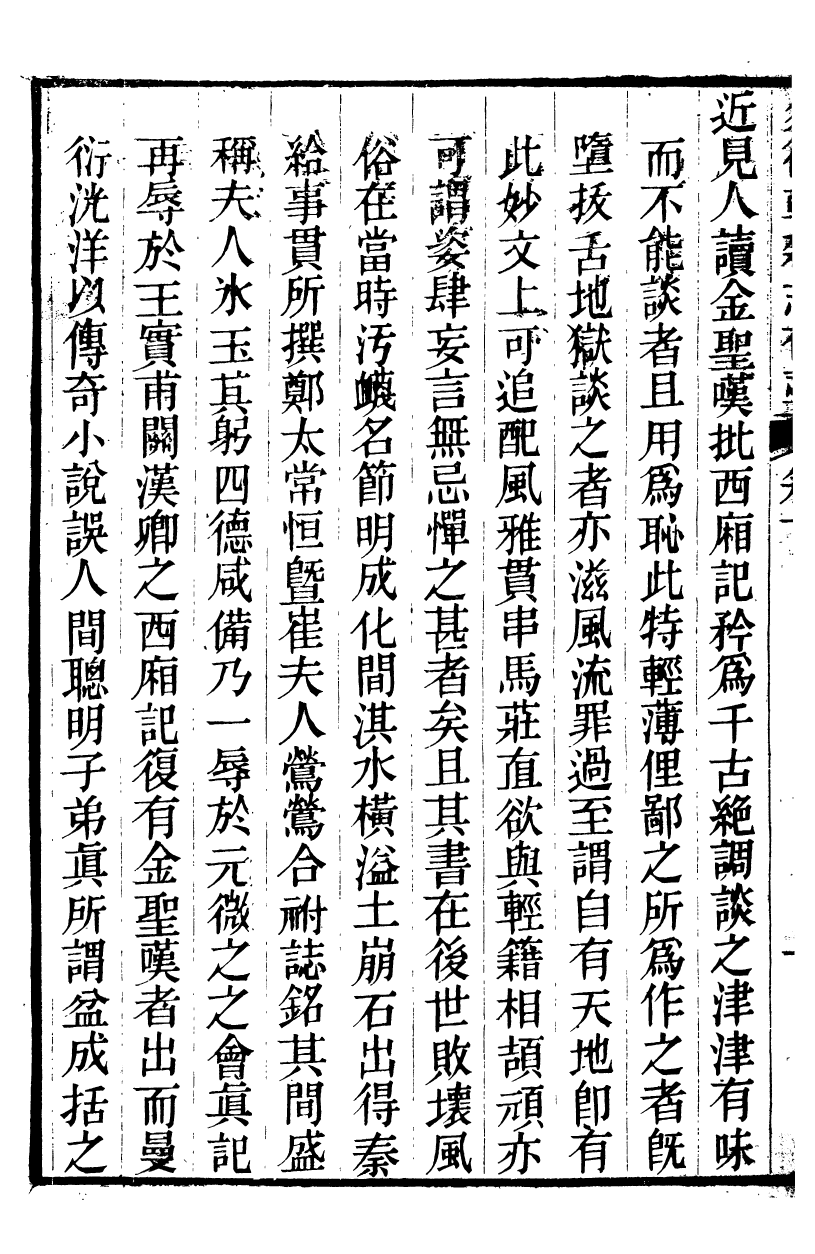 近見人讀金聖嘆批西廂記矜爲千古絶調談之津津有味
而不能談者且用爲恥此特輕薄俚鄙之所爲作之者旣
墮拔舌地獄談之者亦滋風流罪過至謂自有天地卽有
此妙文上可追配風雅貫串馬莊直欲與輕籍相頡頏亦
可謂姿肆妄言無忌憚之甚者矣且其書在後世敗壞風
俗在當時汚衊名節明成化間淇水橫溢土崩石出得秦
給事貫所撰鄭太常恒曁崔夫人鶯鶯合祔誌銘其間盛
稱夫人氷玉其躬四德咸備乃一辱於元微之之會眞記
再辱於王實甫關漢卿之西廂記復有金聖嘆者出而曼
衍洸洋以傳奇小說誤人間聰明子弟眞所謂盆成括之